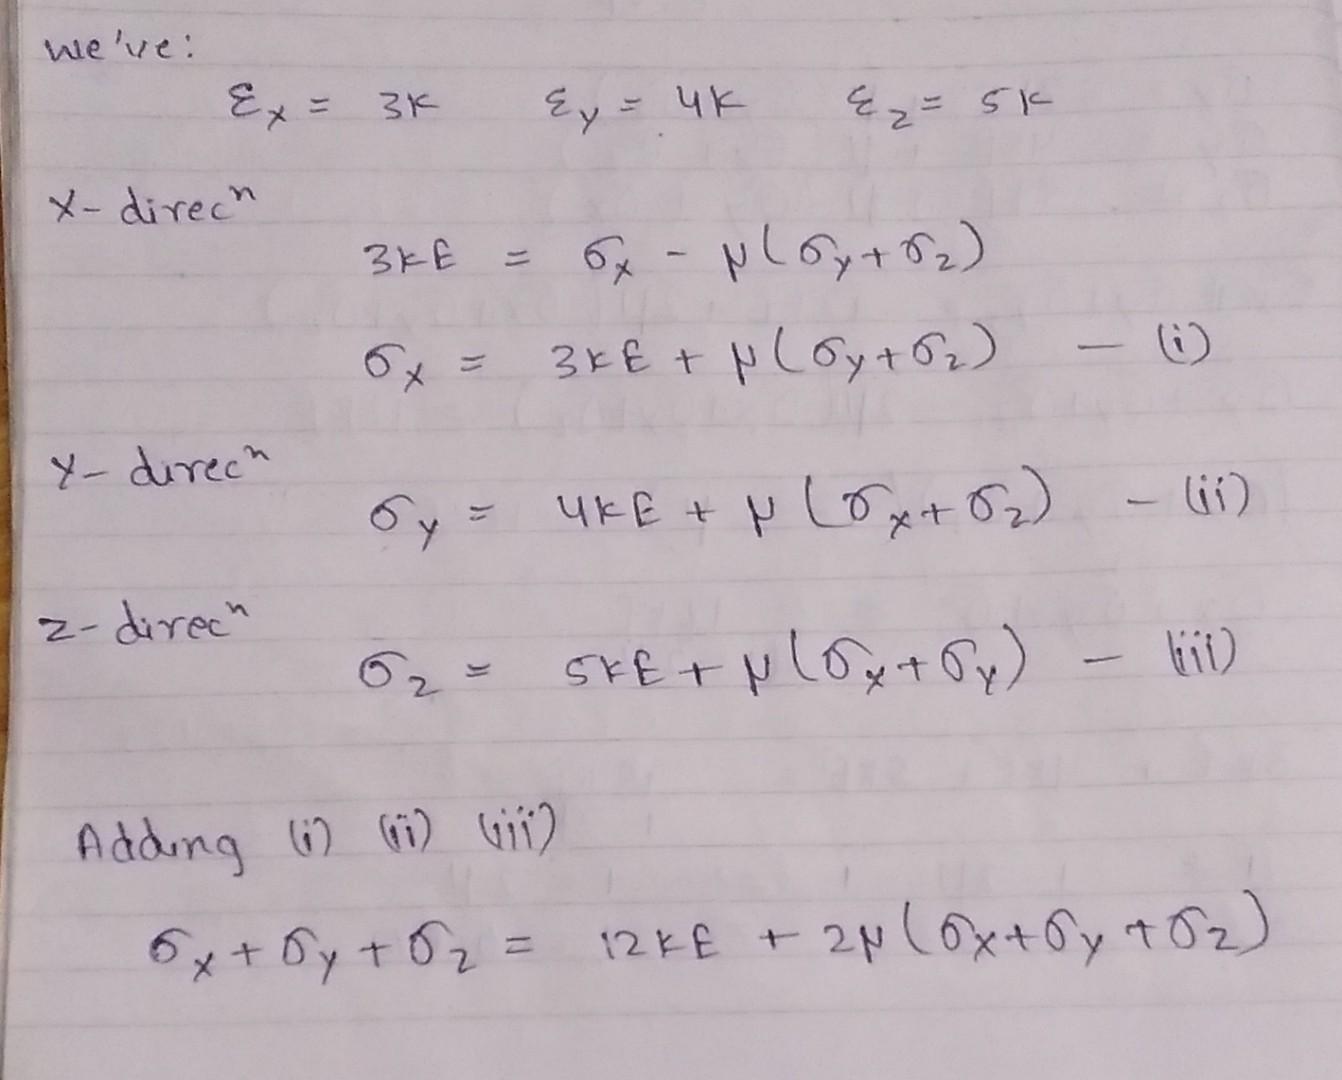 we've:
Ɛx = 3K Ɛy = 4K Ɛz = 5K
X- direcⁿ
3KE = σx - μ(σy+σz)
σx = 3KE + μ(σy+σz) - (i)
Y- direcⁿ
σy = 4KE + μ(σx+σz) - (ii)
Z- direcⁿ
σz = 5KE + μ(σx+σy) - (iii)
Adding (i) (ii) (iii)
σx + σy + σz = 12KE + 2μ(σx+σy+σz)